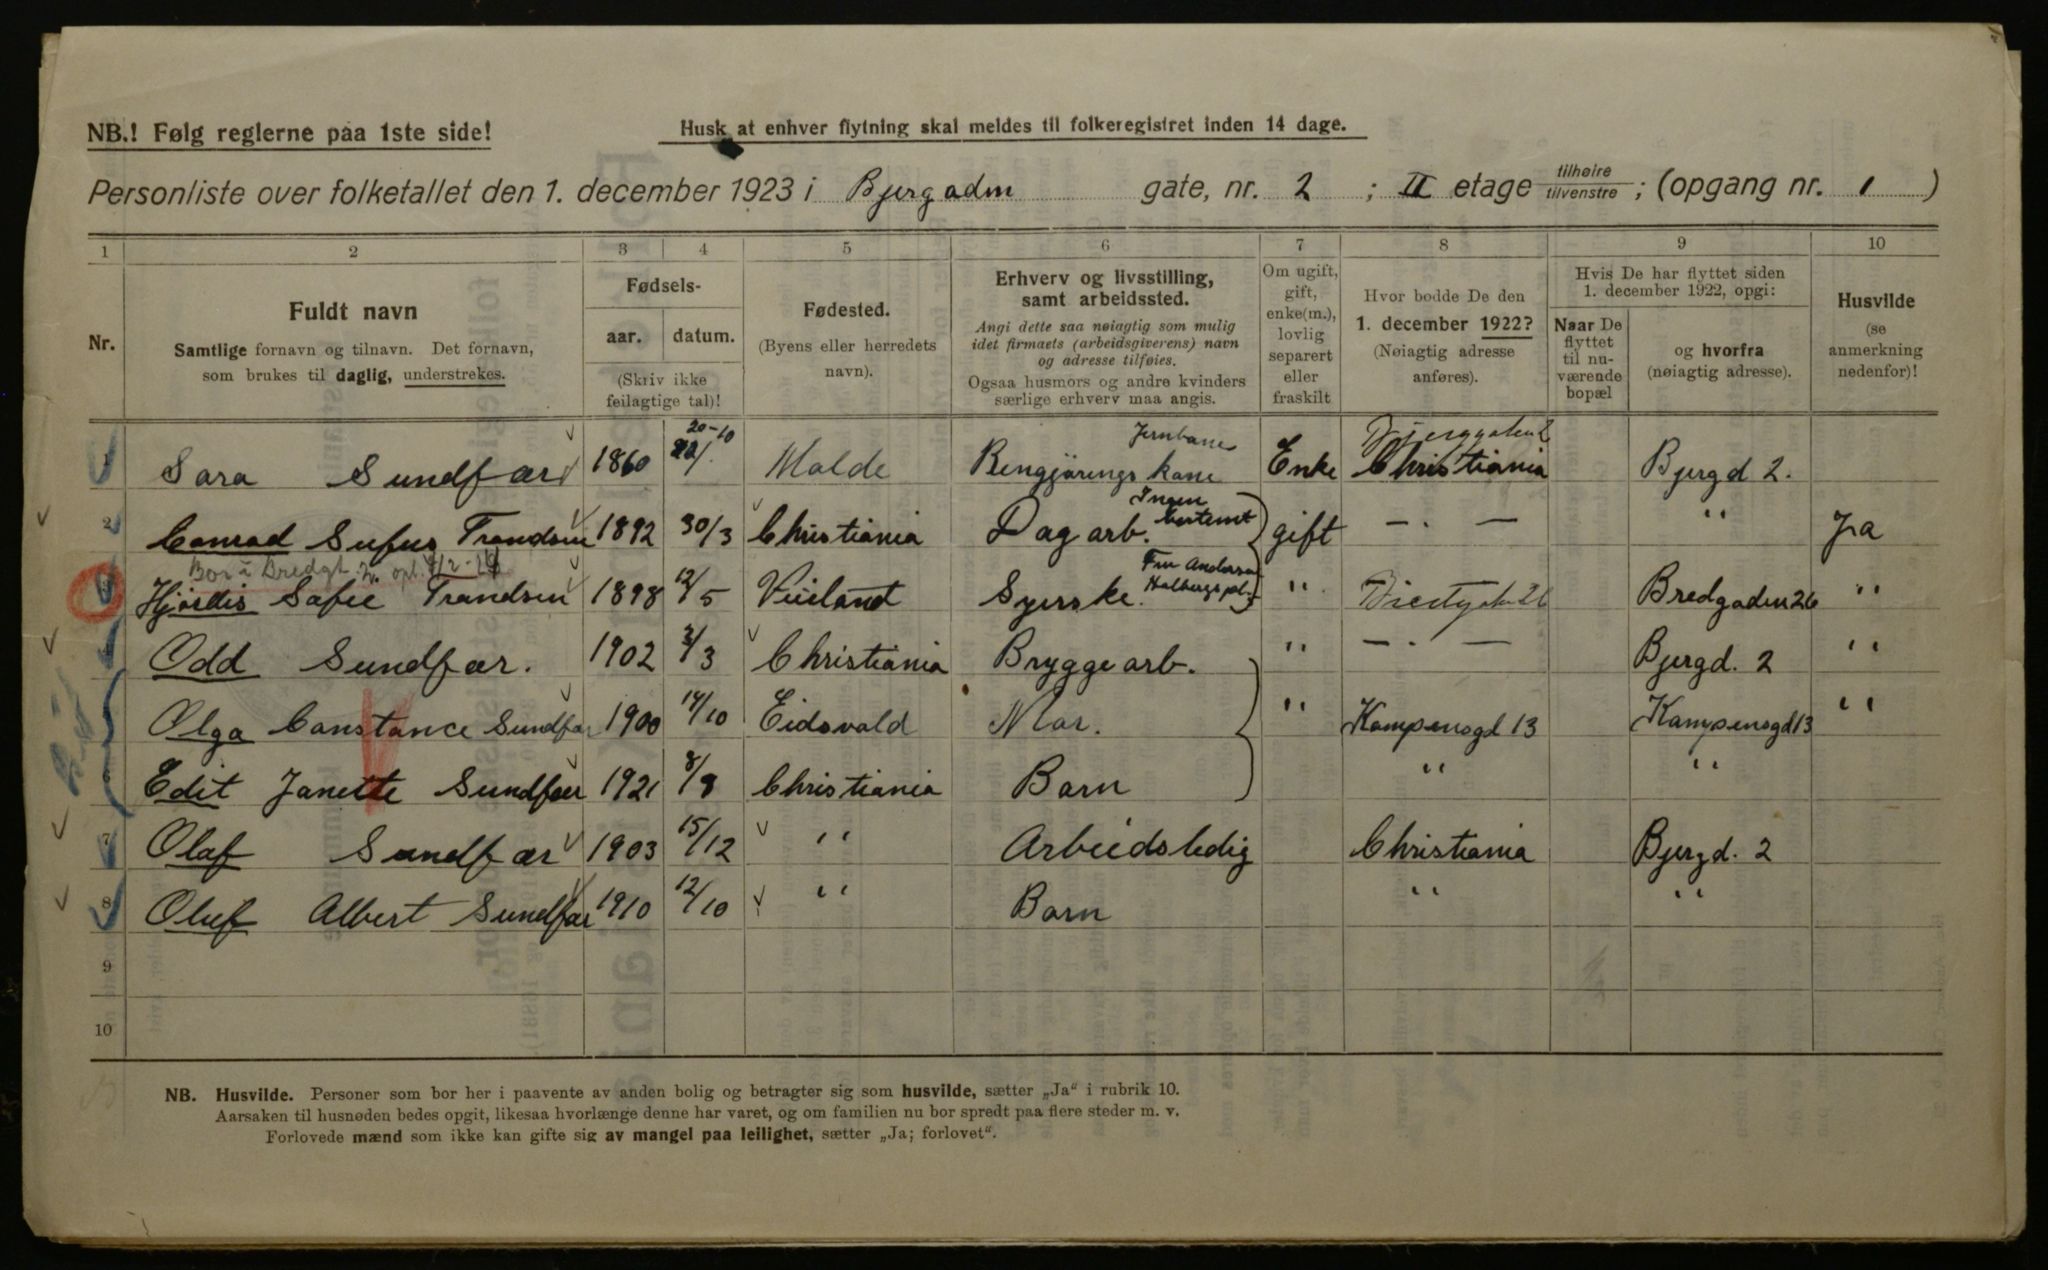 NB.! Følg reglerne paa 1ste side!
Husk at enhver flytning skal meldes til folkeregistret inden 14 dage.
Personliste over folketallet den 1. december 1923 i Bjergadm gate, nr. 2 ; II etage tilhøire/tilvenstre ; (opgang nr. 1 )
1 2 3 4 5 6 7 8 9 10
Nr.
Fuldt navn
Samtlige fornavn og tilnavn. Det fornavn,
som brukes til daglig, understrekes.
Fødsels-
aar. datum.
(Skriv ikke
feilagtige tal)!
Fødested.
(Byens eller herredets
navn).
Erhverv og livsstilling,
samt arbeidssted.
Angi dette saa nøiagtig som mulig
idet firmaets (arbeidsgiverens) navn
og adresse tilføies.
Ogsaa husmors og andre kvinders
særlige erhverv maa angis.
Om ugift,
gift,
enke(m.),
lovlig
separert
eller
fraskilt
Hvor bodde De den
1. december 1922?
(Nøiagtig adresse
anføres).
Hvis De har flyttet siden
1. december 1922, opgi:
Naar De
flyttet
til nu-
værende
bopæl
og hvorfra
(nøiagtig adresse).
Husvilde
(se
anmerkning
nedenfor)!
20-10 Jernbane
1 Sara Sundfær 1860 Molde Rengjørings kone Enke Christiania Bjergd 2.
Ingen bestemt
2 Conrad Sufus Trandsen 1892 30/3 Christiania Dag arb. gift — . — " Ja
Bor i Bredgt.
Fru Anderson Holbergs pl.
Hjørdis Sofie Trandsen 1898 12/5 Veiland Syerske. " Bredgaden 26 "
Odd Sundfær. 1902 2/3 Christiania Bryggearb. " — . — Bjergd. 2 "
Olga Constance Sundfær 1900 14/10 Eidsvold Mor. " Kampensgd 13 Kampensgd 13 "
Edit Janette Sundfær 1921 8/8 Christiania Barn " "
7 Olaf Sundfær 1903 15/12 " Arbeidsledig Christiania Bjergd. 2
8 Oluf Albert Sundfær 1910 12/10 " Barn " "
9
10
NB. Husvilde. Personer som bor her i paavente av anden bolig og betragter sig som husvilde, sætter „Ja“ i rubrik 10.
Aarsaken til husnøden bedes opgit, likesaa hvorlænge denne har varet, og om familien nu bor spredt paa flere steder m. v.
Forlovede mænd som ikke kan gifte sig av mangel paa leilighet, sætter „Ja; forlovet“.